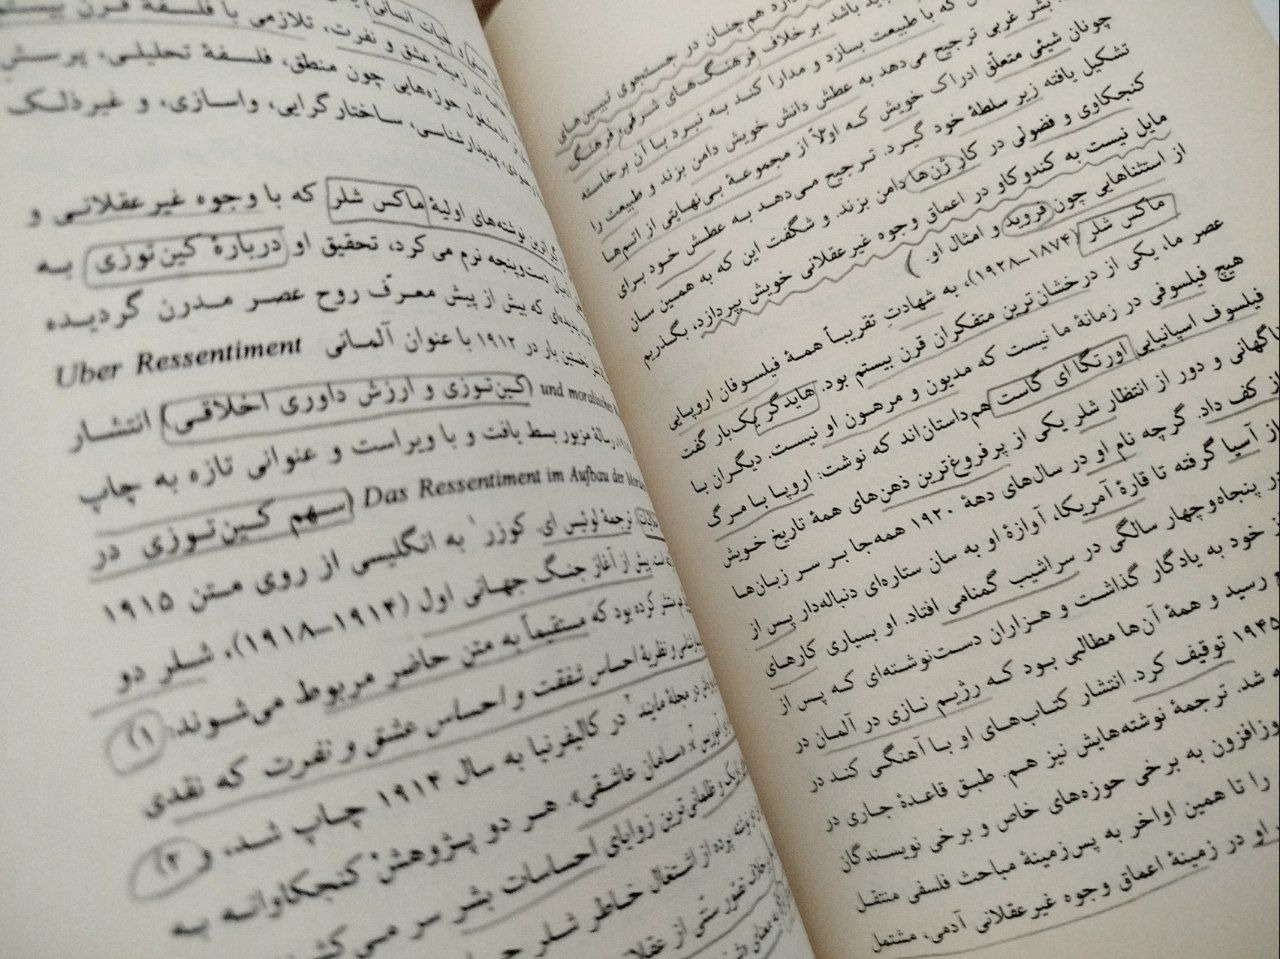 دارد هم‌چنان در جستجوی تبیین‌های
باشد. برخلاف فرهنگ‌های شرقی، فرهنگ
بشر غربی ترجیح می‌دهد به
که با طبیعت بسازد و مدارا کند به نبرد با آن برخاسته
ترجیح می‌دهد به عطش دانش خویش دامن بزند و طبیعت را
چونان شیئی متعلّق ادراک خویش که اولاً از مجموعهٔ بی‌نهایتی از اتم‌ها
تشکیل یافته زیر سلطهٔ خود گیرد. ترجیح می‌دهد به عطش خود برای
کنجکاوی و فضولی در کار ژن‌ها دامن بزند. و شگفت این که به همین سان
مایل نیست به کندوکاو در اعماق وجوه غیرعقلانی خویش بپردازد. بگذریم
از استثناهایی چون فروید و امثال او.
ماکس شلر (۱۸۷۴–۱۹۲۸)، به شهادتِ تقریباً همهٔ فیلسوفان اروپایی
عصر ما، یکی از درخشان‌ترین متفکران قرن بیستم بود. هایدگر یک‌بار گفت
هیچ فیلسوفی در زمانهٔ ما نیست که مدیون و مرهون او نیست. دیگران با
فیلسوف اسپانیایی اورتگا ای گاست هم‌داستان‌اند که نوشت: اروپا با مرگ
ناگهانی و دور از انتظار شلر یکی از پرفروغ‌ترین ذهن‌های همهٔ تاریخ خویش
از کف داد. گرچه نام او در سال‌های دههٔ ۱۹۲۰ همه‌جا بر سر زبان‌ها
از آسیا گرفته تا قارهٔ آمریکا، آوازهٔ او به سان ستاره‌ای دنباله‌دار پس از
در پنجاه‌وچهار سالگی در سراشیب گمنامی افتاد. او بسیاری کارهای
از خود به یادگار گذاشت و هزاران دست‌نوشته‌ای که پس از
رسید و همهٔ آن‌ها مطالبی بود که رژیم نازی در آلمان در
۱۹۴۵ توقیف کرد. انتشار کتاب‌های او با آهنگی کند در
شد. ترجمهٔ نوشته‌هایش نیز هم. طبق قاعدهٔ جاری در
روزافزون به برخی حوزه‌های خاص و برخی نویسندگان
را تا همین اواخر به پس‌زمینهٔ مباحث فلسفی منتقل
او در زمینهٔ اعماق وجوه غیرعقلانی آدمی، مشتمل
و حیات انسانی
در زمینهٔ عشق و نفرت، تلازمی با فلسفهٔ قرن بیستم
مشغول حوزه‌هایی چون منطق، فلسفهٔ تحلیلی، پرسش
پدیدارشناسی، ساختارگرایی، واسازی، و غیرذلک
نوشته‌های اولیهٔ ماکس شلر که با وجوه غیرعقلانی و
دست‌وپنجه نرم می‌کرد، تحقیق او دربارهٔ کین‌توزی به
که بیش از پیش معرّف روح عصر مدرن گردیده
نخستین بار در ۱۹۱۲ با عنوان آلمانی Uber Ressentiment
und moralische (کین‌توزی و ارزش داوری اخلاقی) انتشار
رسالهٔ مزبور بسط یافت و با ویراست و عنوانی تازه به چاپ
Das Ressentiment im Aufbau der (سهم کین‌توزی در
ترجمهٔ لوئیس ای. کوزر۱ به انگلیسی از روی متن ۱۹۱۵
پیش از آغاز جنگ جهانی اول (۱۹۱۴–۱۹۱۸)، شلر دو
منتشر کرده بود که مستقیماً به متن حاضر مربوط می‌شوند: (۱)
و نظریهٔ احساس شفقت و احساس عشق و نفرت که نقدی
در مجلهٔ مایند۲ در کالیفرنیا به سال ۱۹۱۴ چاپ شد، و (۲)
«سامان عاشقی». هر دو پژوهش کنجکاوانه به
تاریک و ظلمانی‌ترین زوایای احساسات بشر سر می‌کشد
پرده از اشتغال خاطر شلر
خلاف تصور سنّتی از